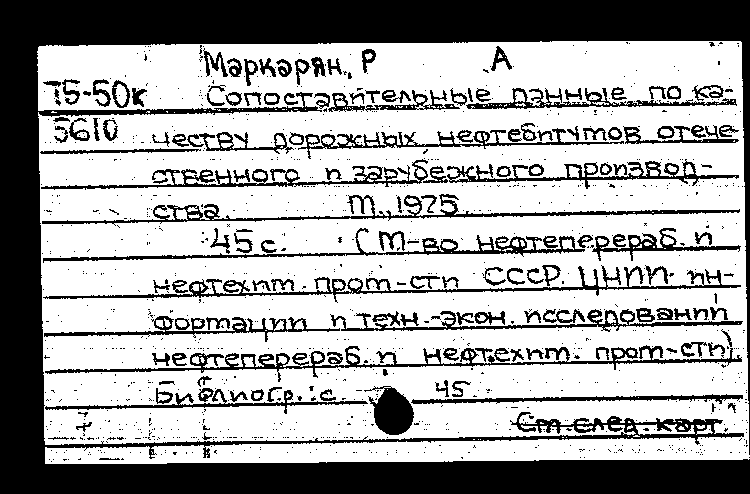 Маркарян, Р А
75-50к Сопоставительные данные по ка-
5610 честву дорожных нефтебитумов отече-
ственного и зарубежного производ-
ства. М., 1975.
45 с. (М-во нефтеперераб. и
нефтехим. пром-сти СССР. ЦНИИ ин-
формации и техн.-экон. исследований
нефтеперераб. и нефтехим. пром-сти)
Библиогр.: с. 45
См. след. карт.